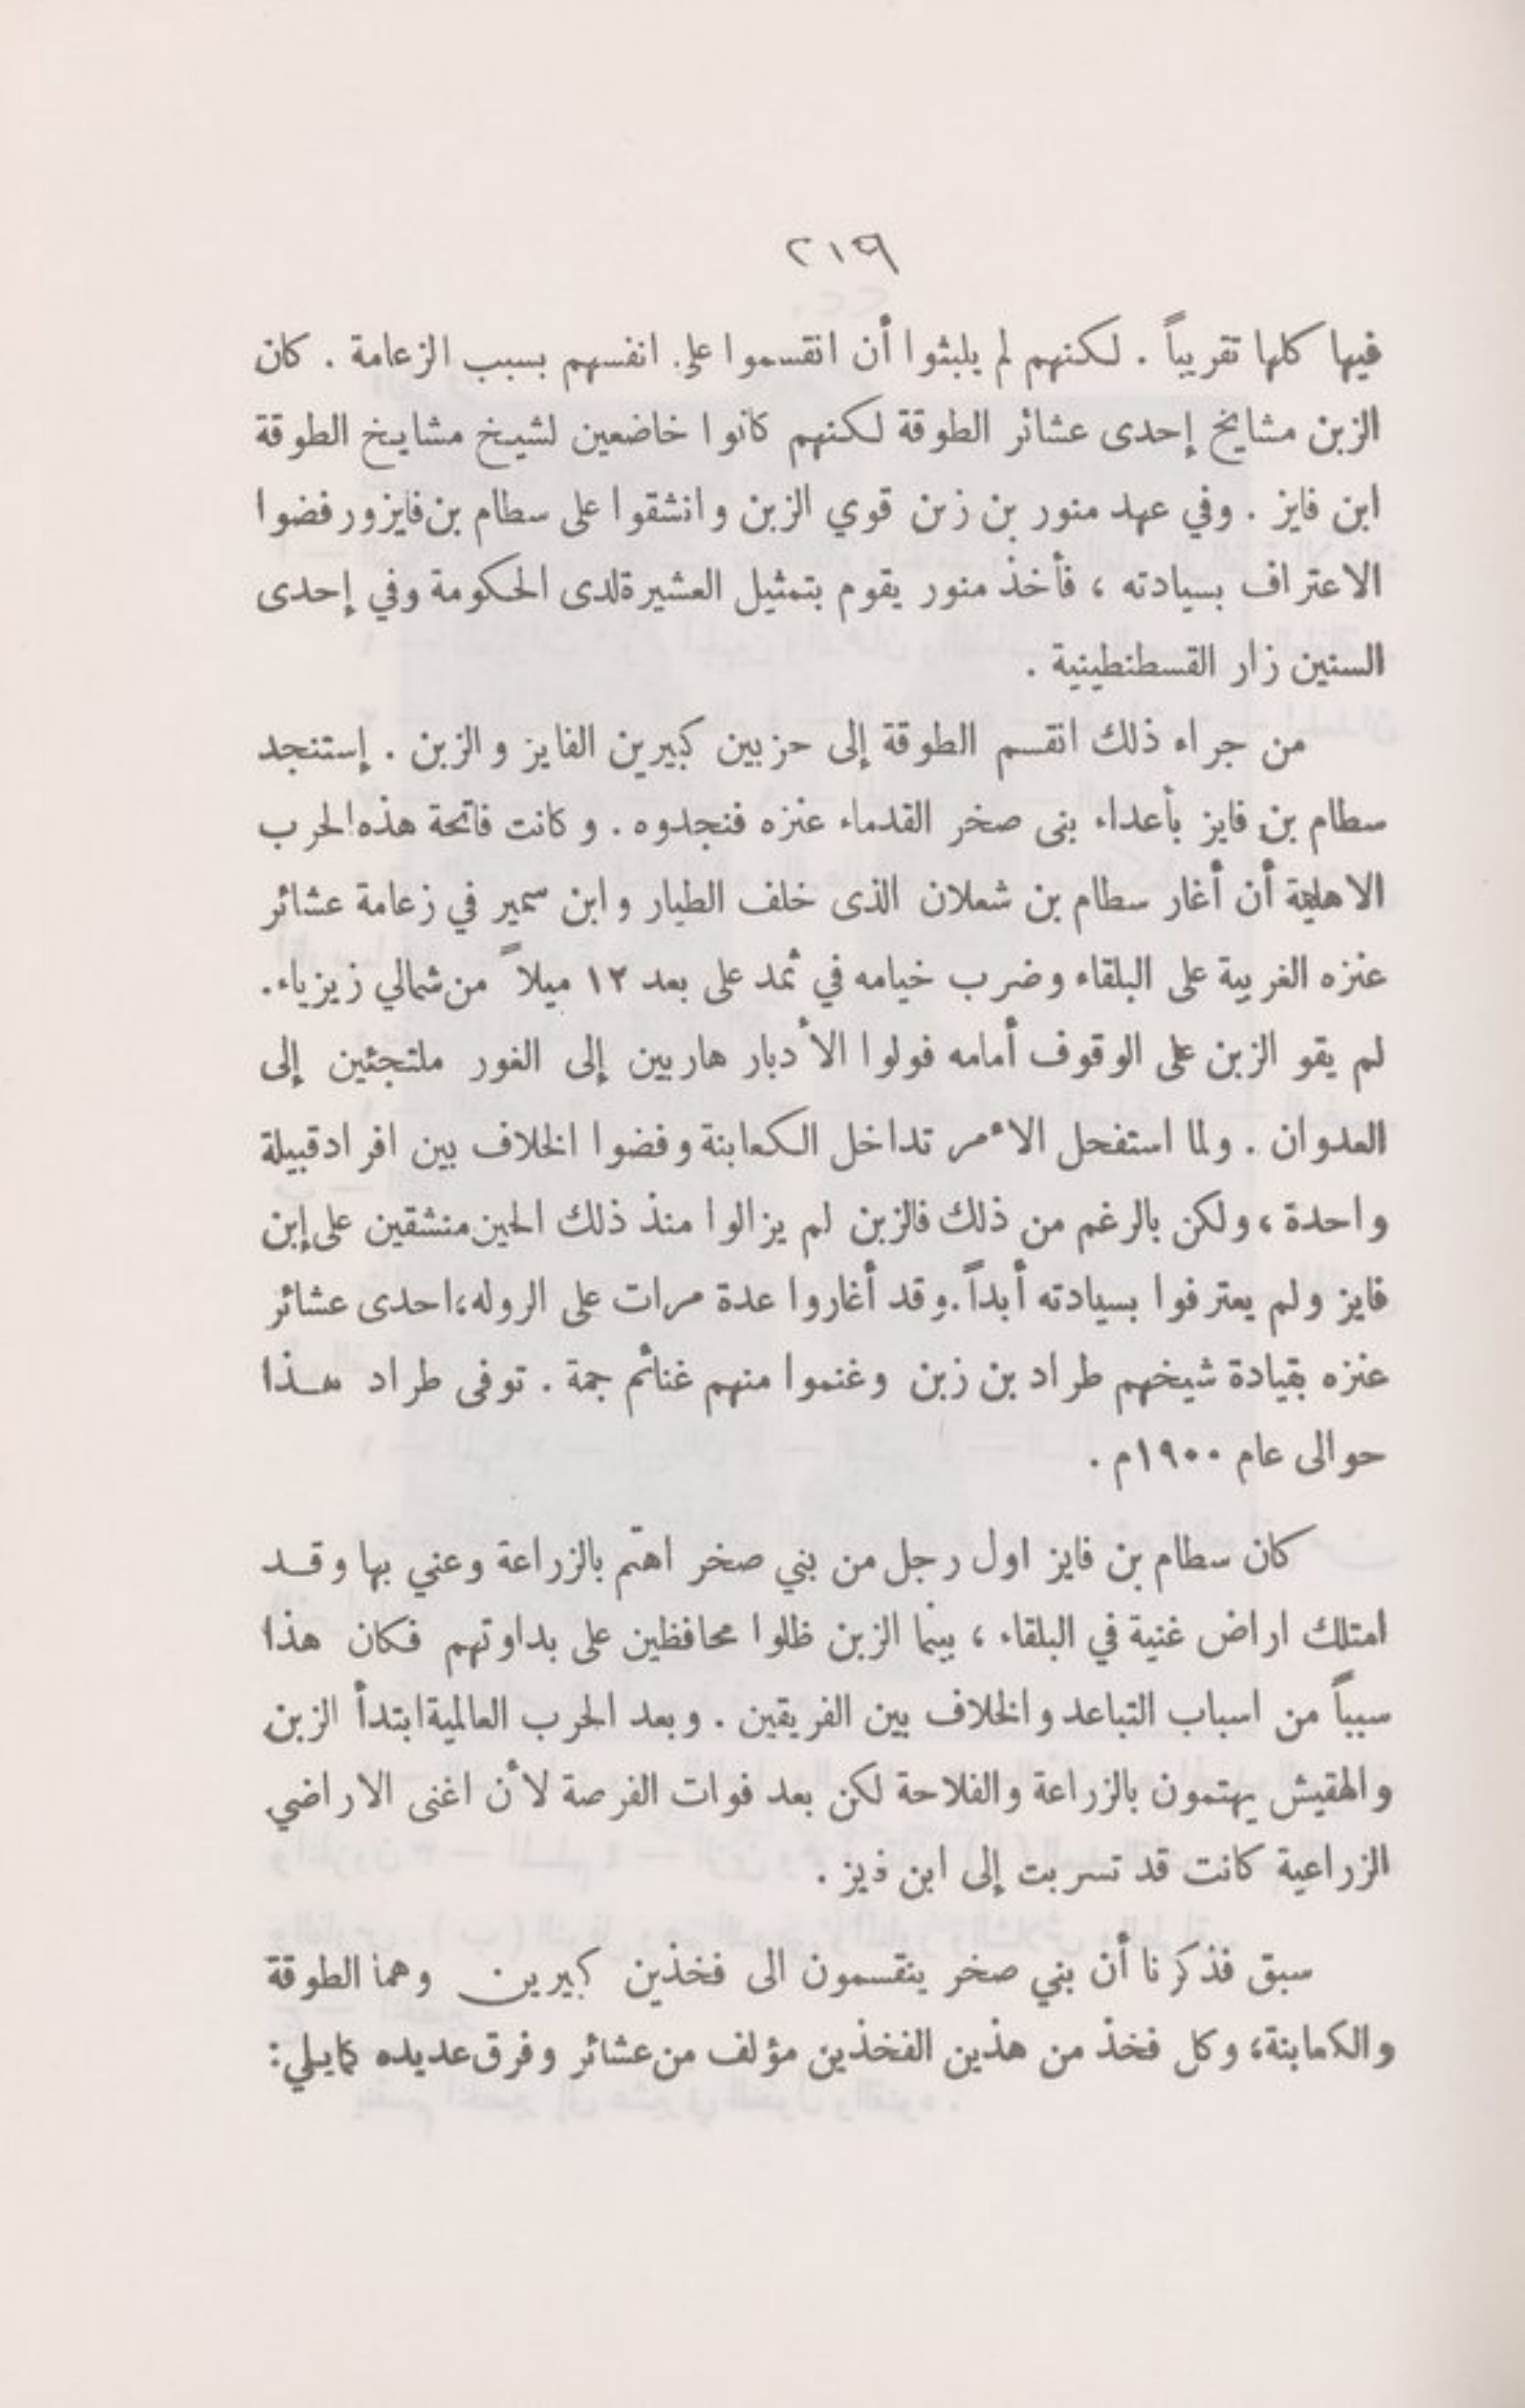 ٢١٩
فيها كلها تقريباً . لكنهم لم يلبثوا أن انقسموا على انفسهم بسبب الزعامة . كان
الزبن مشايخ إحدى عشائر الطوقة لكنهم كانوا خاضعين لشيخ مشايخ الطوقة
ابن فايز . وفي عهد منور بن زبن قوي الزبن وانشقوا على سطام بن فايز ورفضوا
الاعتراف بسيادته ، فأخذ منور يقوم بتمثيل العشيرة لدى الحكومة وفي إحدى
السنين زار القسطنطينية .
من جراء ذلك انقسم الطوقة إلى حزبين كبيرين الفايز والزبن . إستنجد
سطام بن فايز بأعداء بنى صخر القدماء عنزه فنجدوه . وكانت فاتحة هذه الحرب
الاهلية أن أغار سطام بن شعلان الذى خلف الطيار وابن سمير في زعامة عشائر
عنزه الغربية على البلقاء وضرب خيامه في ثمد على بعد ١٢ ميلاً من شمالي زيزياء.
لم يقو الزبن على الوقوف أمامه فولوا الأدبار هاربين إلى الغور ملتجئين إلى
العدوان . ولما استفحل الاءمر تداخل الكعابنة وفضوا الخلاف بين افراد قبيلة
واحدة ، ولكن بالرغم من ذلك فالزبن لم يزالوا منذ ذلك الحين منشقين على إبن
فايز ولم يعترفوا بسيادته أبداً . وقد أغاروا عدة مرات على الروله، احدى عشائر
عنزه بقيادة شيخهم طراد بن زبن وغنموا منهم غنائم جمة . توفى طراد هذا
حوالى عام ١٩٠٠م .
كان سطام بن فايز اول رجل من بني صخر اهتم بالزراعة وعني بها وقد
امتلك اراض غنية في البلقاء ، بينما الزبن ظلوا محافظين على بداوتهم فكان هذا
سبباً من اسباب التباعد والخلاف بين الفريقين . وبعد الحرب العالمية ابتدأ الزبن
والهقيش يهتمون بالزراعة والفلاحة لكن بعد فوات الفرصة لأن اغنى الاراضي
الزراعية كانت قد تسربت إلى ابن فايز .
سبق فذكرنا أن بني صخر ينقسمون الى فخذين كبيرين وهما الطوقة
والكعابنة، وكل فخذ من هذين الفخذين مؤلف من عشائر وفرق عديده كما يلي: